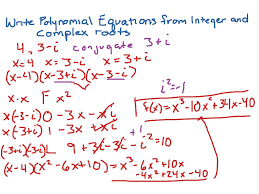 Write Polynomial Equations from Integer and
Complex roots
4, 3-i conjugate 3+i
x=4 x=3-i x=3+i
(x-4)(x-3+i)(x-3-i)
i²=-1
x·x F x²
f(x)=x³-10x²+34x-40
x(-3-i) O -3x -xi
x(-3+i) I -3x +xi
(-3+i)(-3-i) L 9+3i-3i-i²=10
+1
(x-4)(x²-6x+10) = x³-6x²+10x
-4x²+24x-40